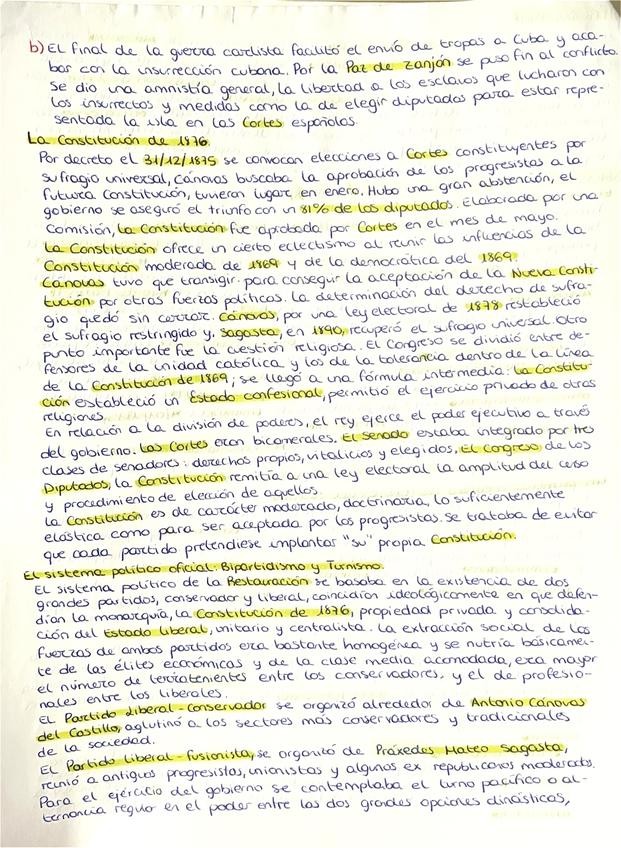 b) El final de la guerra carlista facilitó el envío de tropas a Cuba y aca-
bar con la insurrección cubana. Por la Paz de Zanjón se puso fin al conflicto.
Se dio una amnistía general, la libertad a los esclavos que lucharon con
los insurrectos y medidas como la de elegir diputados para estar repre-
sentada la isla en las Cortes españolas.
La Constitución de 1876.
Por decreto el 31/12/1875 se convocan elecciones a Cortes constituyentes por
sufragio universal, Cánovas buscaba la aprobación de los progresistas a la
futura Constitución, tuvieron lugar en enero. Hubo una gran abstención, el
gobierno se aseguró el triunfo con un 81% de los diputados. Elaborada por una
Comisión, la Constitución fue aprobada por Cortes en el mes de mayo.
La Constitución ofrece un cierto eclectismo al reunir las influencias de la
Constitución moderada de 1869 y de la democrática del 1869.
Cánovas tuvo que transigir para conseguir la aceptación de la Nueva Consti-
tución por otras fuerzas políticas. La determinación del derecho de sufra-
gio quedó sin cerrar. Cánovas, por una ley electoral de 1878 restableció
el sufragio restringido y, Sagasta, en 1890, recuperó el sufragio universal. Otro
punto importante fue la cuestión religiosa. El Congreso se dividió entre de-
fensores de la unidad católica y los de la tolerancia dentro de la línea
de la Constitución de 1869; se llegó a una fórmula intermedia: La Constitu-
ción estableció un Estado confesional, permitió el ejercicio privado de otras
religiones.
En relación a la división de poderes, el rey ejerce el poder ejecutivo a través
del gobierno. Las Cortes eran bicamerales. El Senado estaba integrado por tres
clases de senadores: derechos propios, vitalicios y elegidos. El Congreso de los
Diputados, la Constitución remitía a una ley electoral la amplitud del censo
y procedimiento de elección de aquellos.
La Constitución es de carácter moderado, doctrinaria, lo suficientemente
elástica como para ser aceptada por los progresistas. Se trataba de evitar
que cada partido pretendiese implantar "su" propia Constitución.
El sistema político oficial: Bipartidismo y Turnismo.
El sistema político de la Restauración se basaba en la existencia de dos
grandes partidos, conservador y liberal, coincidían ideológicamente en que defen-
dían la monarquía, la Constitución de 1876, propiedad privada y consolida-
ción del Estado liberal, unitario y centralista. La extracción social de las
fuerzas de ambos partidos era bastante homogénea y se nutría básicamen-
te de las élites económicas y de la clase media acomodada, era mayor
el número de terratenientes entre los conservadores, y el de profesio-
nales entre los liberales.
El Partido Liberal-Conservador se organizó alrededor de Antonio Cánovas
del Castillo, aglutinó a los sectores más conservadores y tradicionales
de la sociedad.
El Partido Liberal-Fusionista, se organizó de Práxedes Mateo Sagasta,
reunió a antiguos progresistas, unionistas y algunos ex republicanos moderados.
Para el ejercicio del gobierno se contemplaba el turno pacífico o al-
ternancia regular en el poder entre las dos grandes opciones dinásticas,